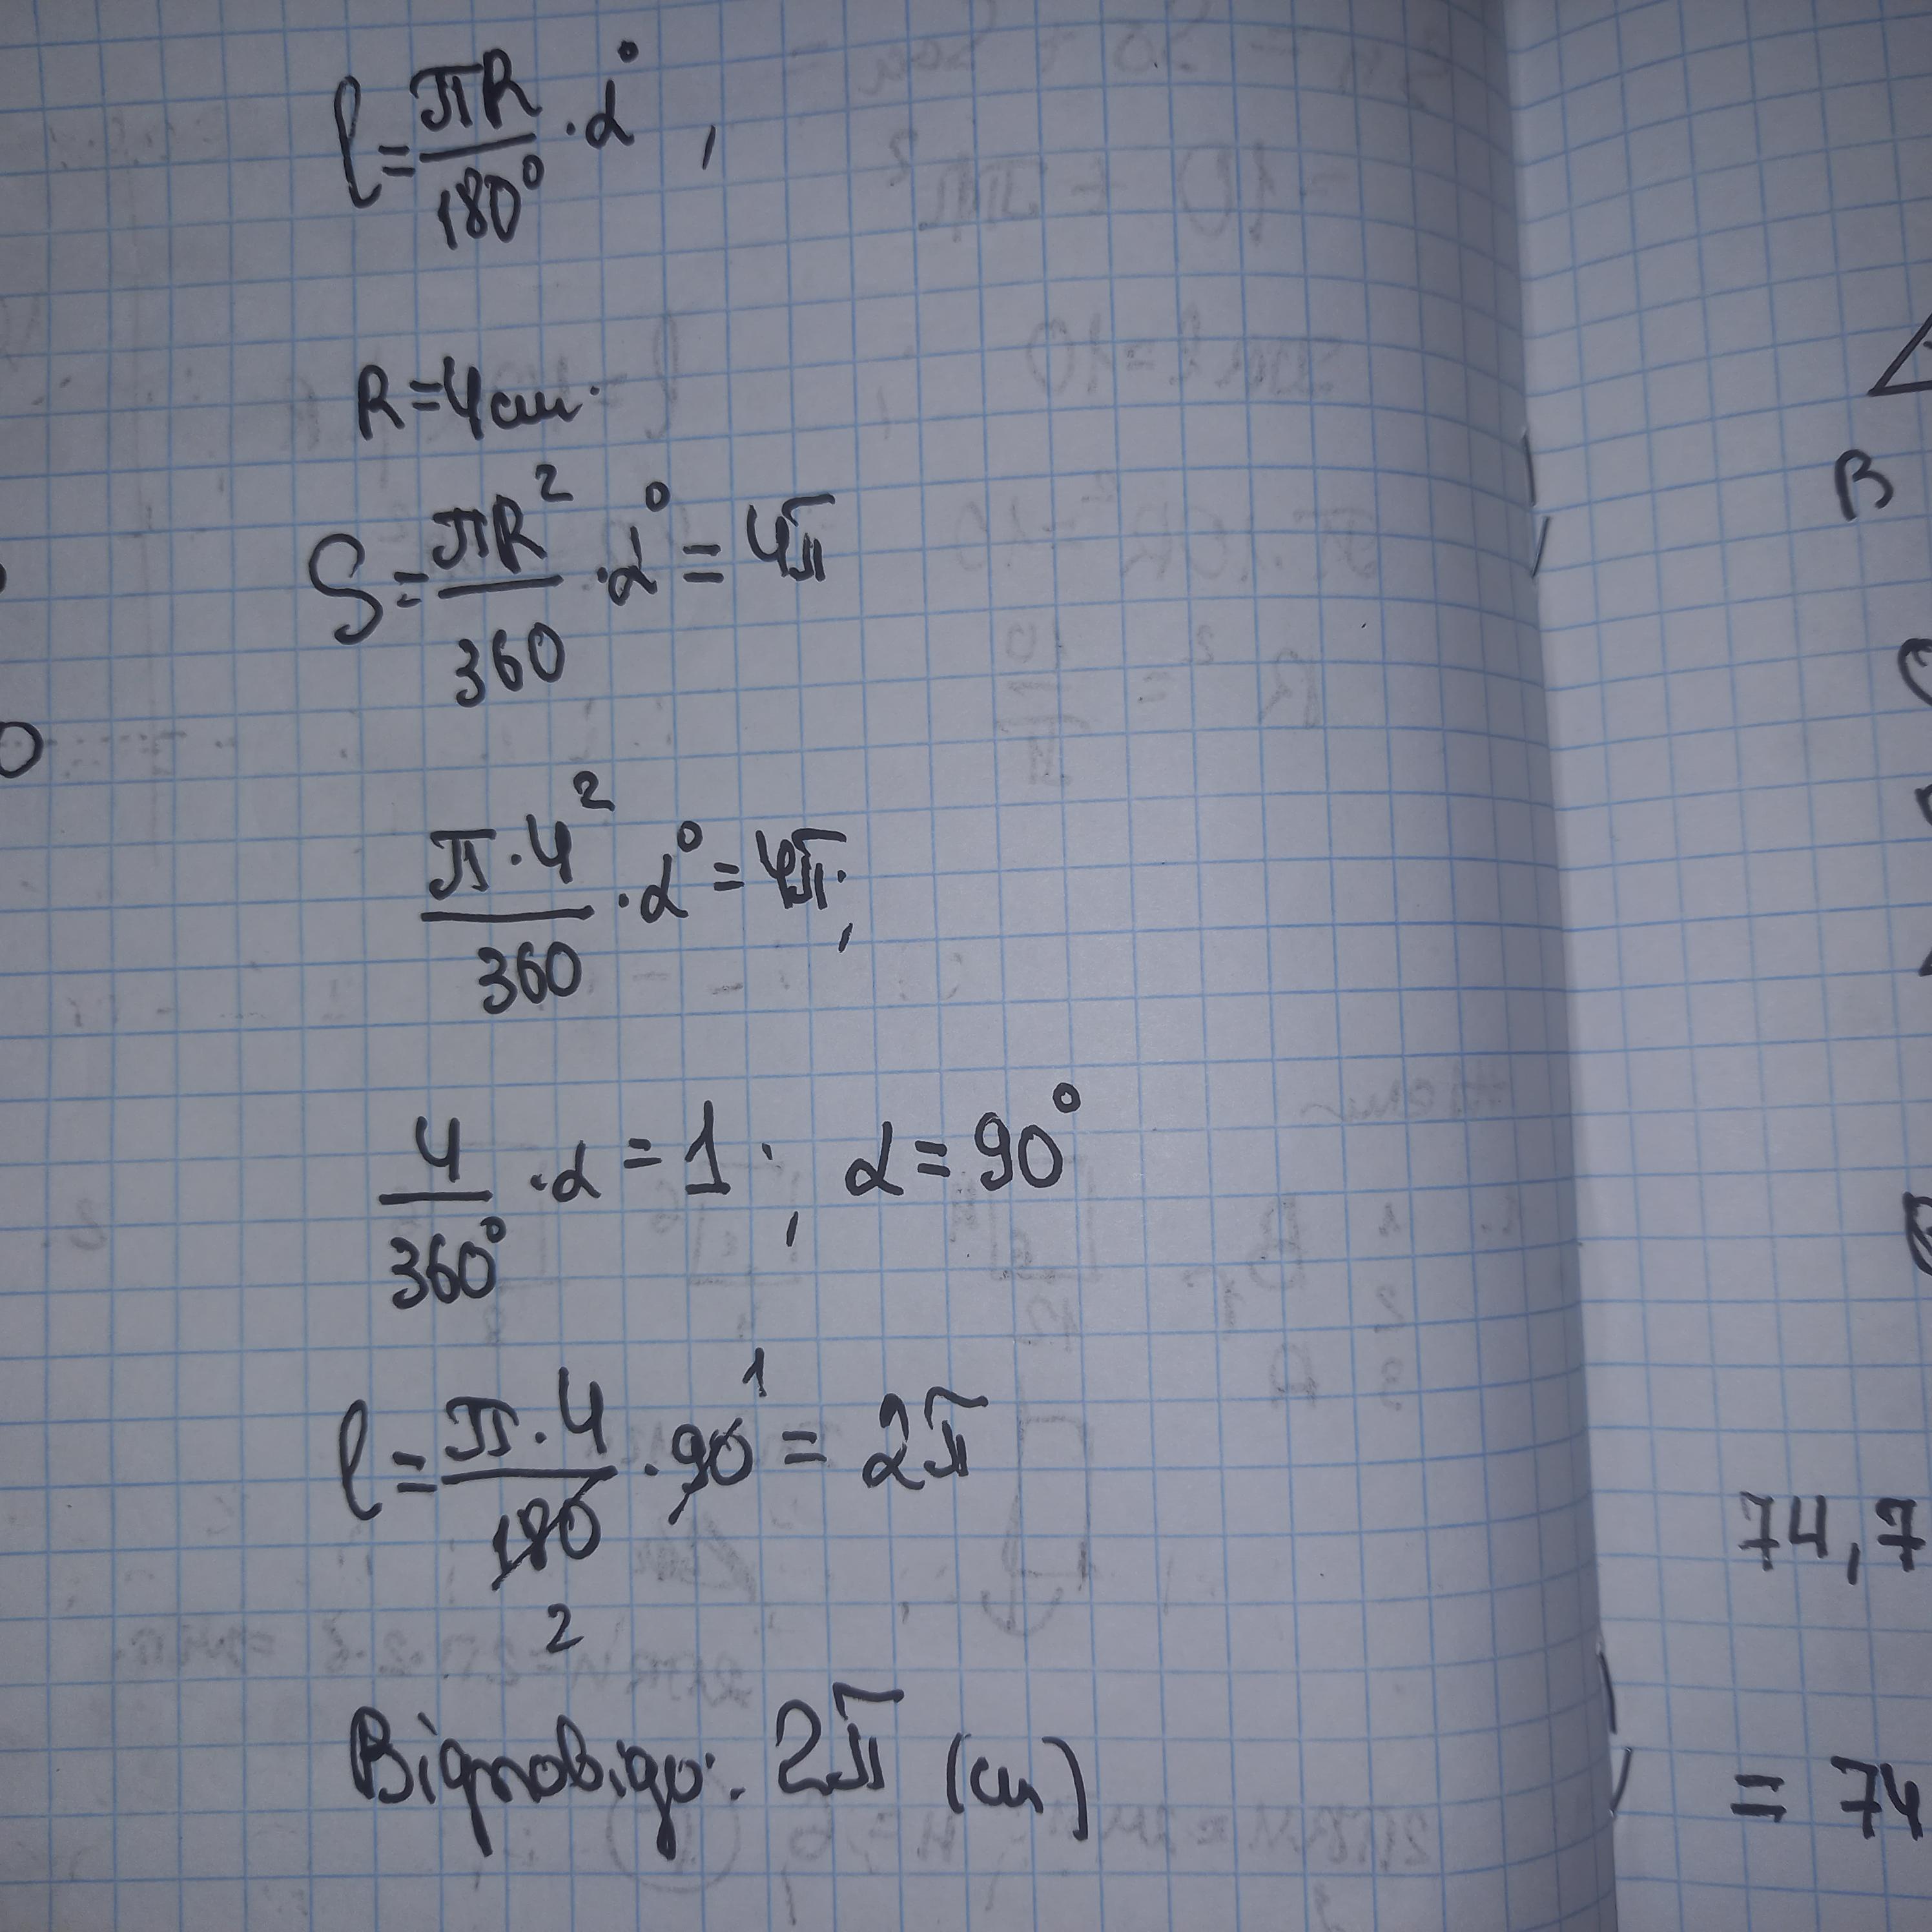 l = πR/180° · α°,
R = 4 см.
S = πR²/360 · α° = 4π
π·4²/360 · α° = 4π;
4/360° · α = 1; α = 90°
l = π·4/180 · 90 = 2π
1
2
Відповідь: 2π (см)
B
74,7
= 74